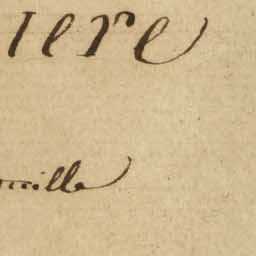 iere
uille